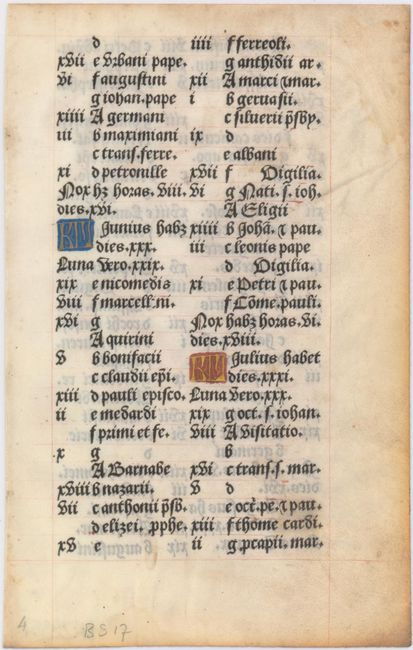 d
xvii e Vrbani pape.
vi f augustini
g iohan. pape
xiiii A germani
iii b maximiani
c trans. ferre.
xi d petronille
Nox hz horas. viii.
dies. xvi.
KL Junius habꝫ
dies. xxx.
Luna vero. xxix.
xix e nicomedis
viii f marcelli. ni.
xvi g
A quirini
v b bonifacii
c claudii ep̄i.
xiii d pauli episco.
ii e medardi
f primi et fe.
x g
A Barnabe
xviii b nazarii.
vii c anthonii p̄sb.
d elizei. ꝓphe.
xv e
iiii f ferreoli.
g anthidii ar.
xii A marci ⁊ mar.
i b geruasii.
c siluerii p̄sby.
ix d
e albani
xvii f Vigilia.
vi g Nati. s. ioh.
A Eligii
xiiii b Joha᷑. ⁊ pau.
iii c leonis pape
d Vigilia.
xi e Petri ⁊ pau.
f Cōme. pauli.
Nox habꝫ horas. vi.
dies. xviii.
KL Julius habet
dies. xxxi.
Luna vero. xxx.
xix g oct. s. iohan.
viii A Visitatio.
b
xvi c trans. s. mar.
v d
e oct̄. pe. ⁊ pau.
xiii f thome cardi.
ii g ꝓcapii. mar.
4
BS 17